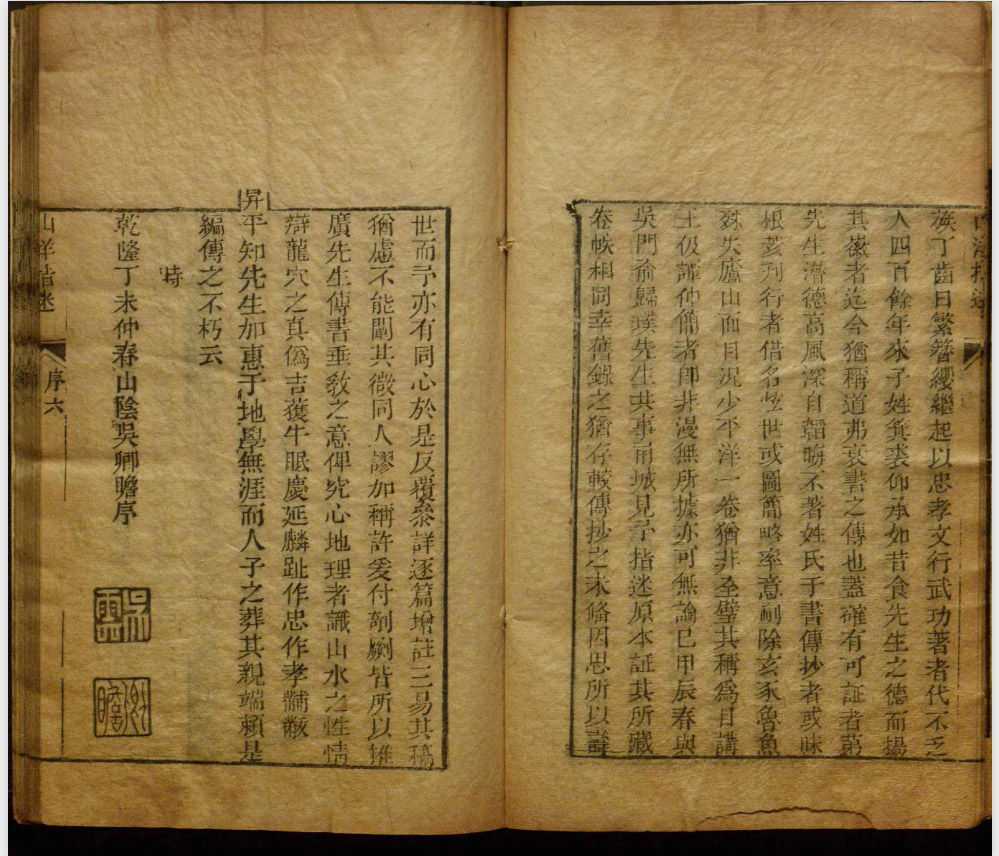 族丁齒日繁簪纓繼起以忠孝文行武功著者代不乏
人四百餘年來子姓箕裘仰承如昔食先生之德而揚
其徽者迄今猶稱道弗衰書之傳也蓋確有可証者第
先生潛德高風深自韜晦不著姓氏于書傳抄者或昧
根荄刋行者借名炫世或圖簡略率意刪除亥豕魯魚
殊失廬山面目况少平洋一卷猶非全璧其稱為目講
王伋謹仲簡者卽非漫無所據亦可無論已甲辰春與
吳門俞歸璞先生共事甬城見予指迷原本証其所藏
卷帙相同幸舊錄之猶存較傳抄之未偹因思所以壽
世而予亦有同心於是反覆參詳逐篇增註三易其稿
猶慮不能闡其微同人謬加稱許爰付剞劂皆所以推
廣先生傳書垂教之意俾究心地理者識山水之性情
辯龍穴之真偽吉獲牛眠慶延麟趾作忠作孝黼黻
昇平知先生加惠于地學無涯而人子之葬其親端賴是
編傳之不朽云
時
乾隆丁未仲春山陰吳卿瞻序
山洋指迷
序六